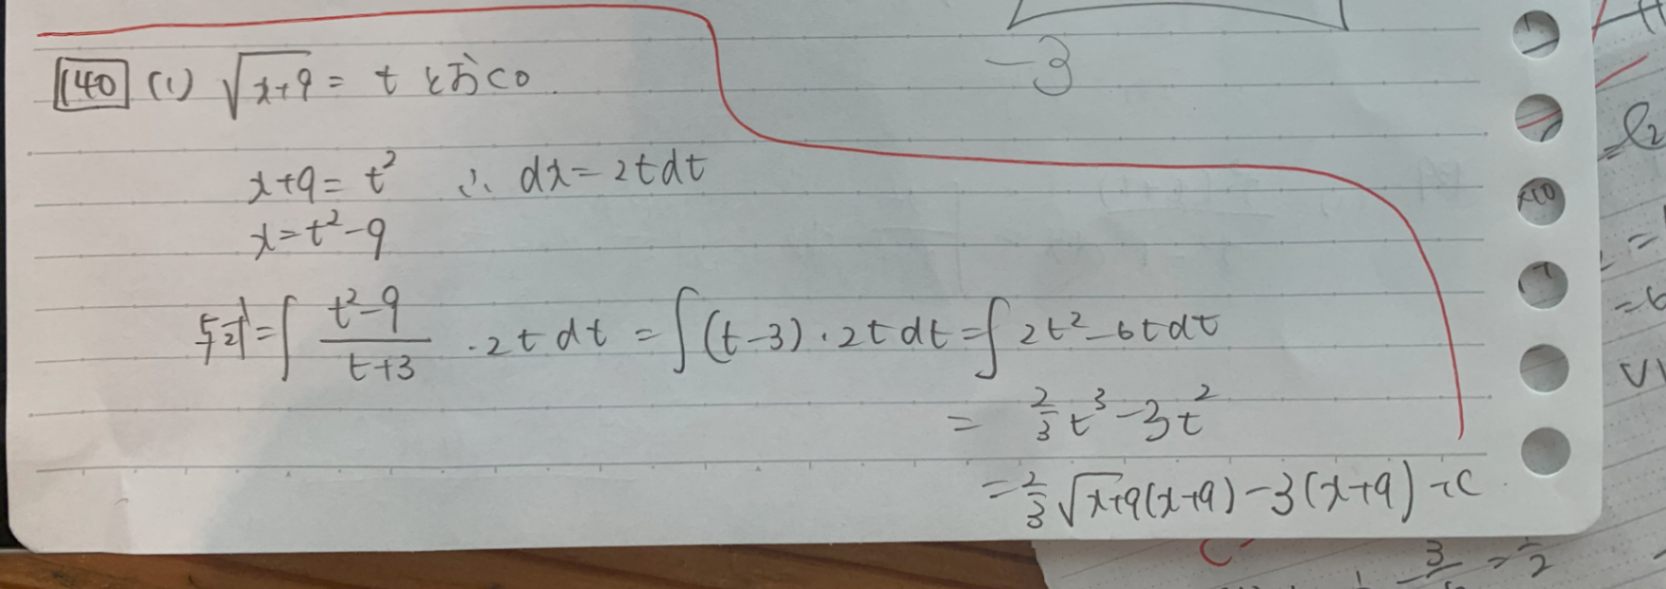 -3
140 (1) √(x+9) = t とおく。
x+9 = t² ∴ dx = 2tdt
x = t²-9
与式 = ∫ (t²-9)/(t+3) · 2t dt = ∫(t-3)·2t dt = ∫ 2t²-6t dt
= 2/3 t³ - 3t²
= 2/3 √(x+9) (x+9) - 3(x+9) + C